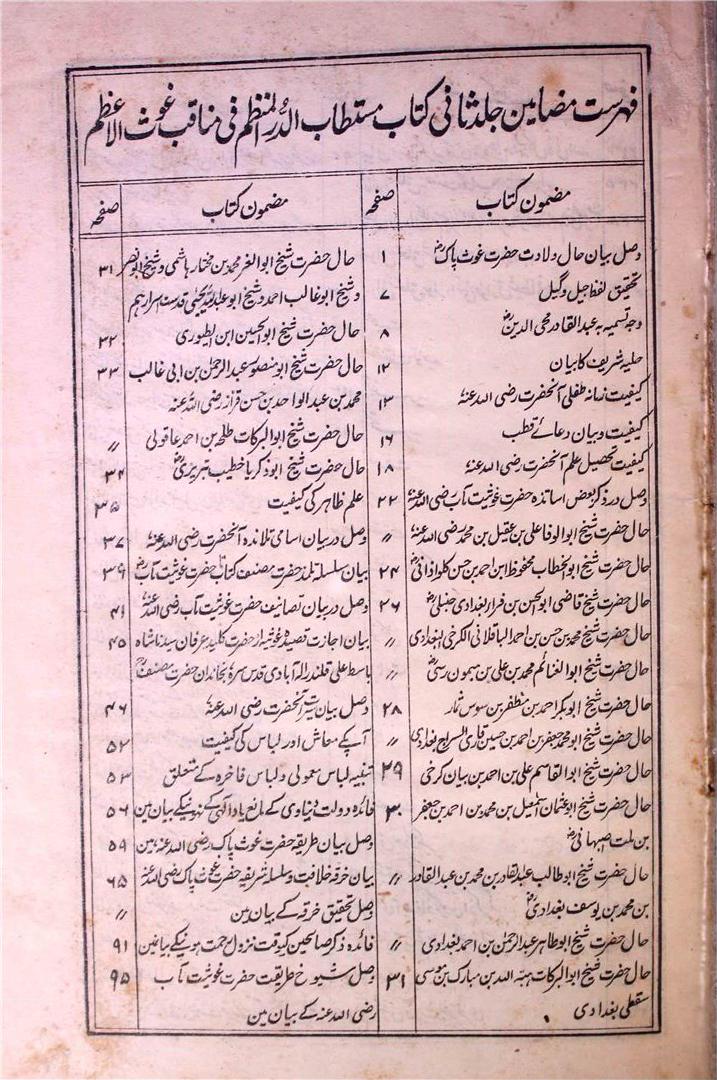 فہرست مضامین جلد ثانی کتاب مستطاب الدر المنظم فی مناقب غوث الاعظم
مضمون کتاب صفحہ
وصل بیان حال ولادت حضرت غوث پاکؓ ۱
تحقیق لفظ جیل و گیل ۷
وجہ تسمیہ بہ عبدالقادر محی الدینؓ ۸
حلیہ شریف کا بیان ۱۲
کیفیت زمانہ طفلی آنحضرت رضی اللہ عنہ ۱۳
کیفیت و بیان دعائے قطب ۱۶
کیفیت تحصیل علم آنحضرت رضی اللہ عنہ ۱۸
وصل در ذکر بعض اساتذہ حضرت غوثیت مآب رضی اللہ عنہ ۲۲
حال حضرت شیخ ابوالوفا علی بن عقیل بن محمد رضی اللہ عنہ ؍؍
حال حضرت شیخ ابوالخطاب محفوظ ابن احمد بن حسن کلواذانیؓ ۲۴
حال حضرت شیخ قاضی ابوالحسن بن فرار بغدادی حنبلیؓ ۲۶
حال حضرت شیخ محمد بن حسن بن احمد الباقلانی الکرخی البغدادی ؍؍
حال حضرت شیخ ابوالغنائم محمد بن علی بن میمون رسیؓ ؍؍
حال حضرت شیخ ابوبکر احمد بن مظفر بن سوس تمار ۲۸
حال حضرت شیخ ابو محمد جعفر بن احمد بن حسین قاری السراج بغدادی ؍؍
حال حضرت شیخ ابوالقاسم علی بن احمد بن بیان کرخی ۲۹
حال حضرت شیخ ابوعثمان اسمٰعیل بن محمد بن احمد بن جعفر ۳۰
بن ملت اصبہانیؓ
حال حضرت شیخ ابوطالب عبدالقادر بن محمد بن عبدالقادر ؍؍
بن محمد بن یوسف بغدادیؓ
حال حضرت شیخ ابوطاہر عبدالرحمٰن بن احمد بغدادی ؍؍
حال حضرت شیخ ابوالبرکات ہبۃ اللہ بن مبارک بن موسی ۳۱
سقطی بغدادی
مضمون کتاب صفحہ
حال حضرت شیخ ابوالعز محمد بن مختار ہاشمی و شیخ ابونصر ۳۱
و شیخ ابوغالب احمد و شیخ ابوعبداللہ یحیٰی قدست اسرارہم
حال حضرت شیخ ابوالحسین ابن الطیوری ۳۲
حال حضرت شیخ ابومنصور عبدالرحمٰن بن ابی غالب ۳۳
محمد بن عبدالواحد بن حسن قزاز رضی اللہ عنہ
حال حضرت شیخ ابوالبرکات طلحہ بن احمد عاقولی ؍؍
حال حضرت شیخ ابوذکریا خطیب تبریزیؓ ۳۴
علم ظاہر کی کیفیت ۳۵
وصل در بیان اسامی تلامذہ آنحضرت رضی اللہ عنہ ۳۷
بیان سلسلہ تلمذ حضرت مصنف کتاب تا حضرت غوثیت مآبؓ ۳۹
وصل در بیان تصانیف حضرت غوثیت مآب رضی اللہ عنہ ۴۱
بیان اجازت قصیدہ غوثیہ از حضرت کلید عرفان سیدنا شاہ ۴۵
باسط علی قلندر الہ آبادی قدس سرہ بخاندان حضرت مصنفؒ
وصل بیان سیرت آنحضرت رضی اللہ عنہ ۴۶
آپکے معاش اور لباس کی کیفیت ۵۲
تنبیہ لباس معمولی و لباس فاخرہ کے متعلق ۵۳
فائدہ دولت دنیاوی کے مانع یاد الٰہی کے نہونیکے بیان مین ۵۶
وصل بیان طریقہ حضرت غوث پاک رضی اللہ عنہ مین ۵۹
بیان خرقہ خلافت و سلسلہ شریفہ حضرت غوث پاک رضی اللہ عنہ ۶۵
وصل تحقیق خرقہ کے بیان مین ؍؍
فائدہ ذکر صالحین کیوقت نزول رحمت ہونیکے بیانمین ۹۱
وصل شیوخ طریقت حضرت غوثیت مآب ۹۵
رضی اللہ عنہ کے بیان مین